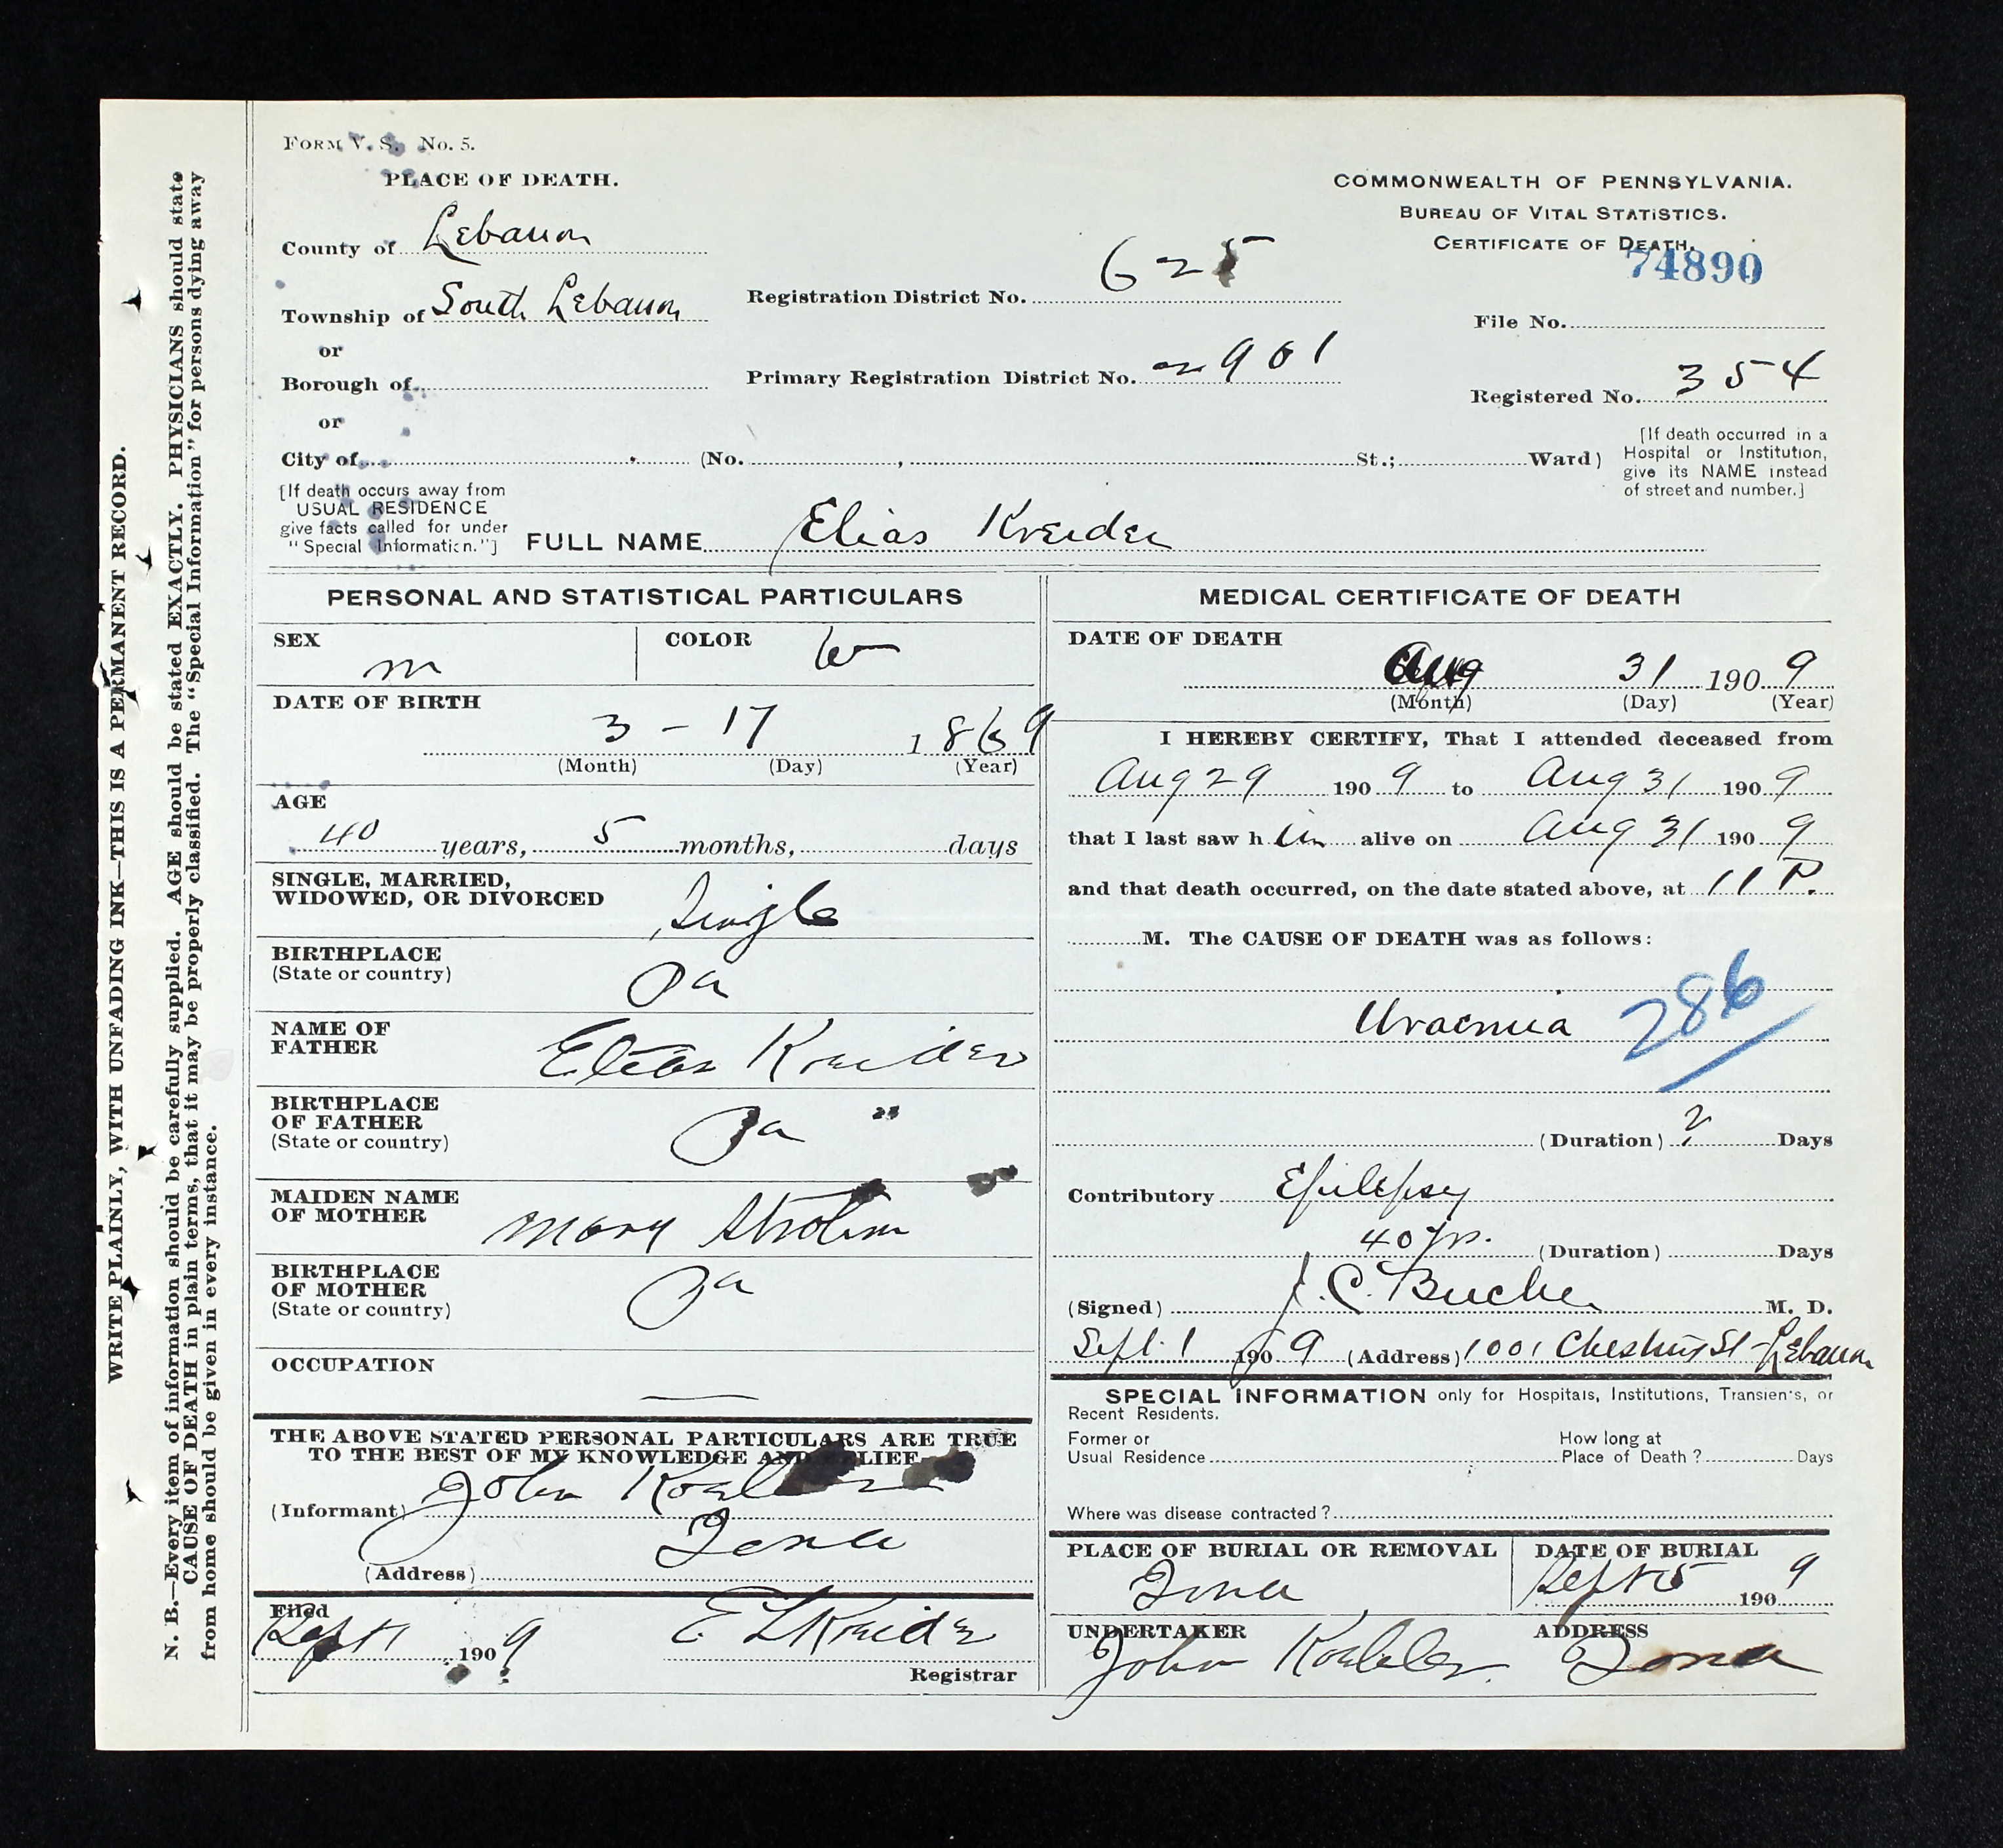 FORM V. S. No. 5.
PLACE OF DEATH.
COMMONWEALTH OF PENNSYLVANIA.
BUREAU OF VITAL STATISTICS.
CERTIFICATE OF DEATH.
74890
County of Lebanon
Township of South Lebanon
or
Borough of
or
City of (No. , St.; Ward)
Registration District No. 625
Primary Registration District No. 2901
File No.
Registered No. 354
[If death occurred in a
Hospital or Institution,
give its NAME instead
of street and number.]
[If death occurs away from
USUAL RESIDENCE
give facts called for under
"Special Information."]
FULL NAME Elias Kreider
PERSONAL AND STATISTICAL PARTICULARS
SEX m
COLOR W
DATE OF BIRTH
3 - 17 1869
(Month) (Day) (Year)
AGE
40 years, 5 months, days
SINGLE, MARRIED,
WIDOWED, OR DIVORCED Single
BIRTHPLACE
(State or country) Pa
NAME OF
FATHER Elias Kreider
BIRTHPLACE
OF FATHER
(State or country) Pa "
MAIDEN NAME
OF MOTHER Mary Strohm
BIRTHPLACE
OF MOTHER
(State or country) Pa
OCCUPATION
THE ABOVE STATED PERSONAL PARTICULARS ARE TRUE
TO THE BEST OF MY KNOWLEDGE AND BELIEF
(Informant) John Koehler
(Address) Iona
Filed
Sept 1 1909 E L Kreider
Registrar
MEDICAL CERTIFICATE OF DEATH
DATE OF DEATH
Aug 31 1909
(Month) (Day) (Year)
I HEREBY CERTIFY, That I attended deceased from
Aug 29 1909 to Aug 31 1909
that I last saw him alive on Aug 31 1909
and that death occurred, on the date stated above, at 11 P.
M. The CAUSE OF DEATH was as follows:
Uraemia 286
(Duration) 2 Days
Contributory Epilepsy
40 yrs. (Duration) Days
(Signed) J. C. Bucher M. D.
Sept. 1 1909 (Address) 1001 Chestnut St - Lebanon
SPECIAL INFORMATION only for Hospitals, Institutions, Transients, or
Recent Residents.
Former or
Usual Residence
How long at
Place of Death? Days
Where was disease contracted?
PLACE OF BURIAL OR REMOVAL
Iona
DATE OF BURIAL
Sept 5 1909
UNDERTAKER
John Koehler
ADDRESS
Iona
WRITE PLAINLY, WITH UNFADING INK—THIS IS A PERMANENT RECORD.
N. B.—Every item of information should be carefully supplied. AGE should be stated EXACTLY. PHYSICIANS should state
CAUSE OF DEATH in plain terms, that it may be properly classified. The "Special Information" for persons dying away
from home should be given in every instance.